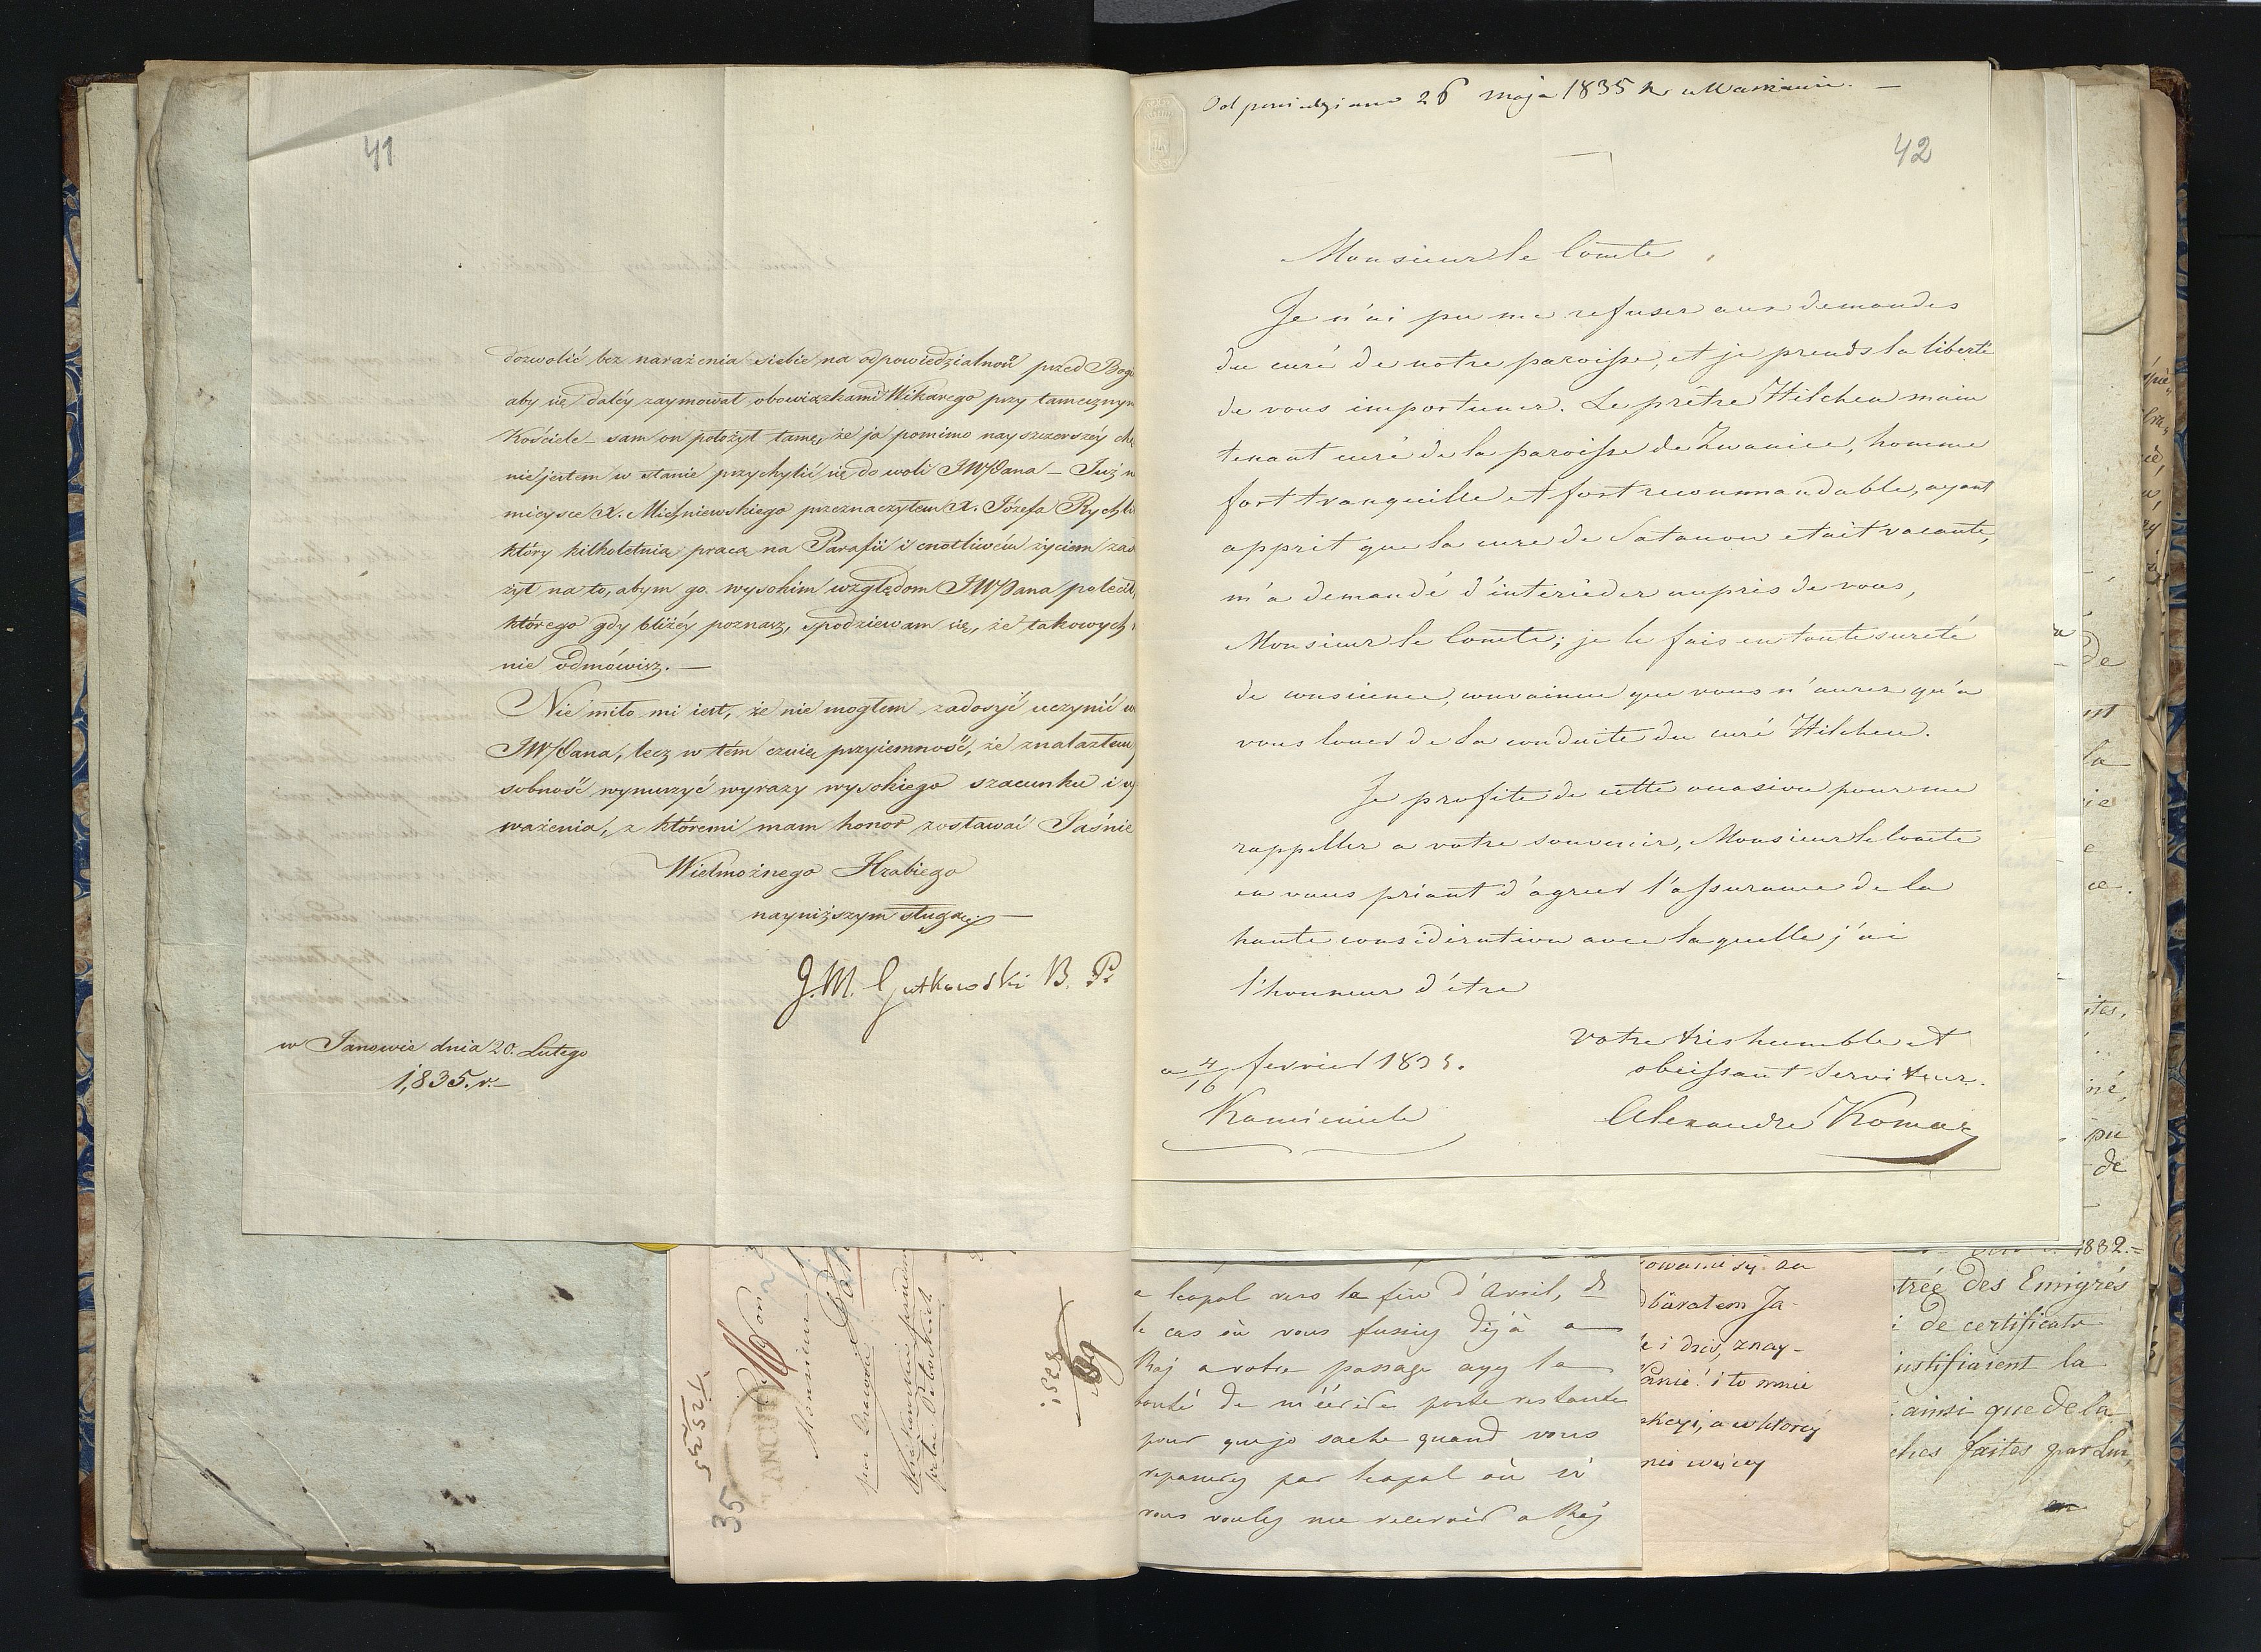 41
dozwolić bez narażenia siebie na odpowiedzialność przed Bog
aby się daléy zaymował obowiązkami Wikarego przy tamecznym
Kościele – sam on położył tamę, że ja pomimo nayszczerszéy chę
nie jestem w stanie przychylić się do woli JWPana – Już n
mieysce X. Michniewskiego przeznaczyłem X. Józefa Rychli
który kilkoletnią pracą na Parafii i cnotliwém życiem zas
żył na to, abym go wysokim względom JWPana polecił,
którego gdy bliżéy poznasz, spodziewam się, że takowych
nie odmówisz. —
Nie miło mi iest, że nie mogłem zadosyć uczynić w
JWPana, lecz w tém czuię przyiemność, że znalazłem
sobność wynurzyć wyrazy wysokiego szacunku i u
ważenia, z któremi mam honor zostawać Jaśnie
Wielmożnego Hrabiego
nayniższym sługą. —
J. M. Gutkowski B. P.
w Janowie dnia 20. Lutego
1,835. r. —
Odpowiedziano 26 maja 1835 r. —
42
Monsieur le Comte,
Je n'ai pu me refuser aux demandes
du curé de notre paroisse, et je prends la liberté
de vous importuner. Le prêtre Hilchen main
tenant curé de la paroisse de Zwaniec, homme
fort tranquille et fort recommandable, ayant
apprit que la cure de Satanow etait vacante,
m'a demandé d'interieder aupris de vous,
Monsieur le Comte; je le fais en toute sureté
de consience, convaincu que vous n'aurez qu'a
vous louer de la conduite du curé Hilchen.
Je profite de cette occasion pour me
rappeller a votre souvenir, Monsieur le Comte
en vous priant d'agreer l'assurance de la
haute consideration avec laquelle j'ai
l'honneur d'être
Votre tris humble et
obeissant Serviteur.
a 4/16 fevrier 1835.
Kamieniec
Alexandre Komar
35
T 2555
Monsieur
1828
e leopol vers la fin d'Avril, et
le cas où vous fussiez déjà a
Raj a votre passage ayez la
bonté de m'écrire poste restante
pour que je sache quand vous
repasserez par leopol où si
vous voulez me recevoir a Raj
owanie się za
le i dziś, znay-
i to mnie
a w którey
nie więcey
1832.
trée des Emigrés
i de certificats
justifiasent la
ainsi que de la
ches faites par Lui,
de
la
ce.
pu
de